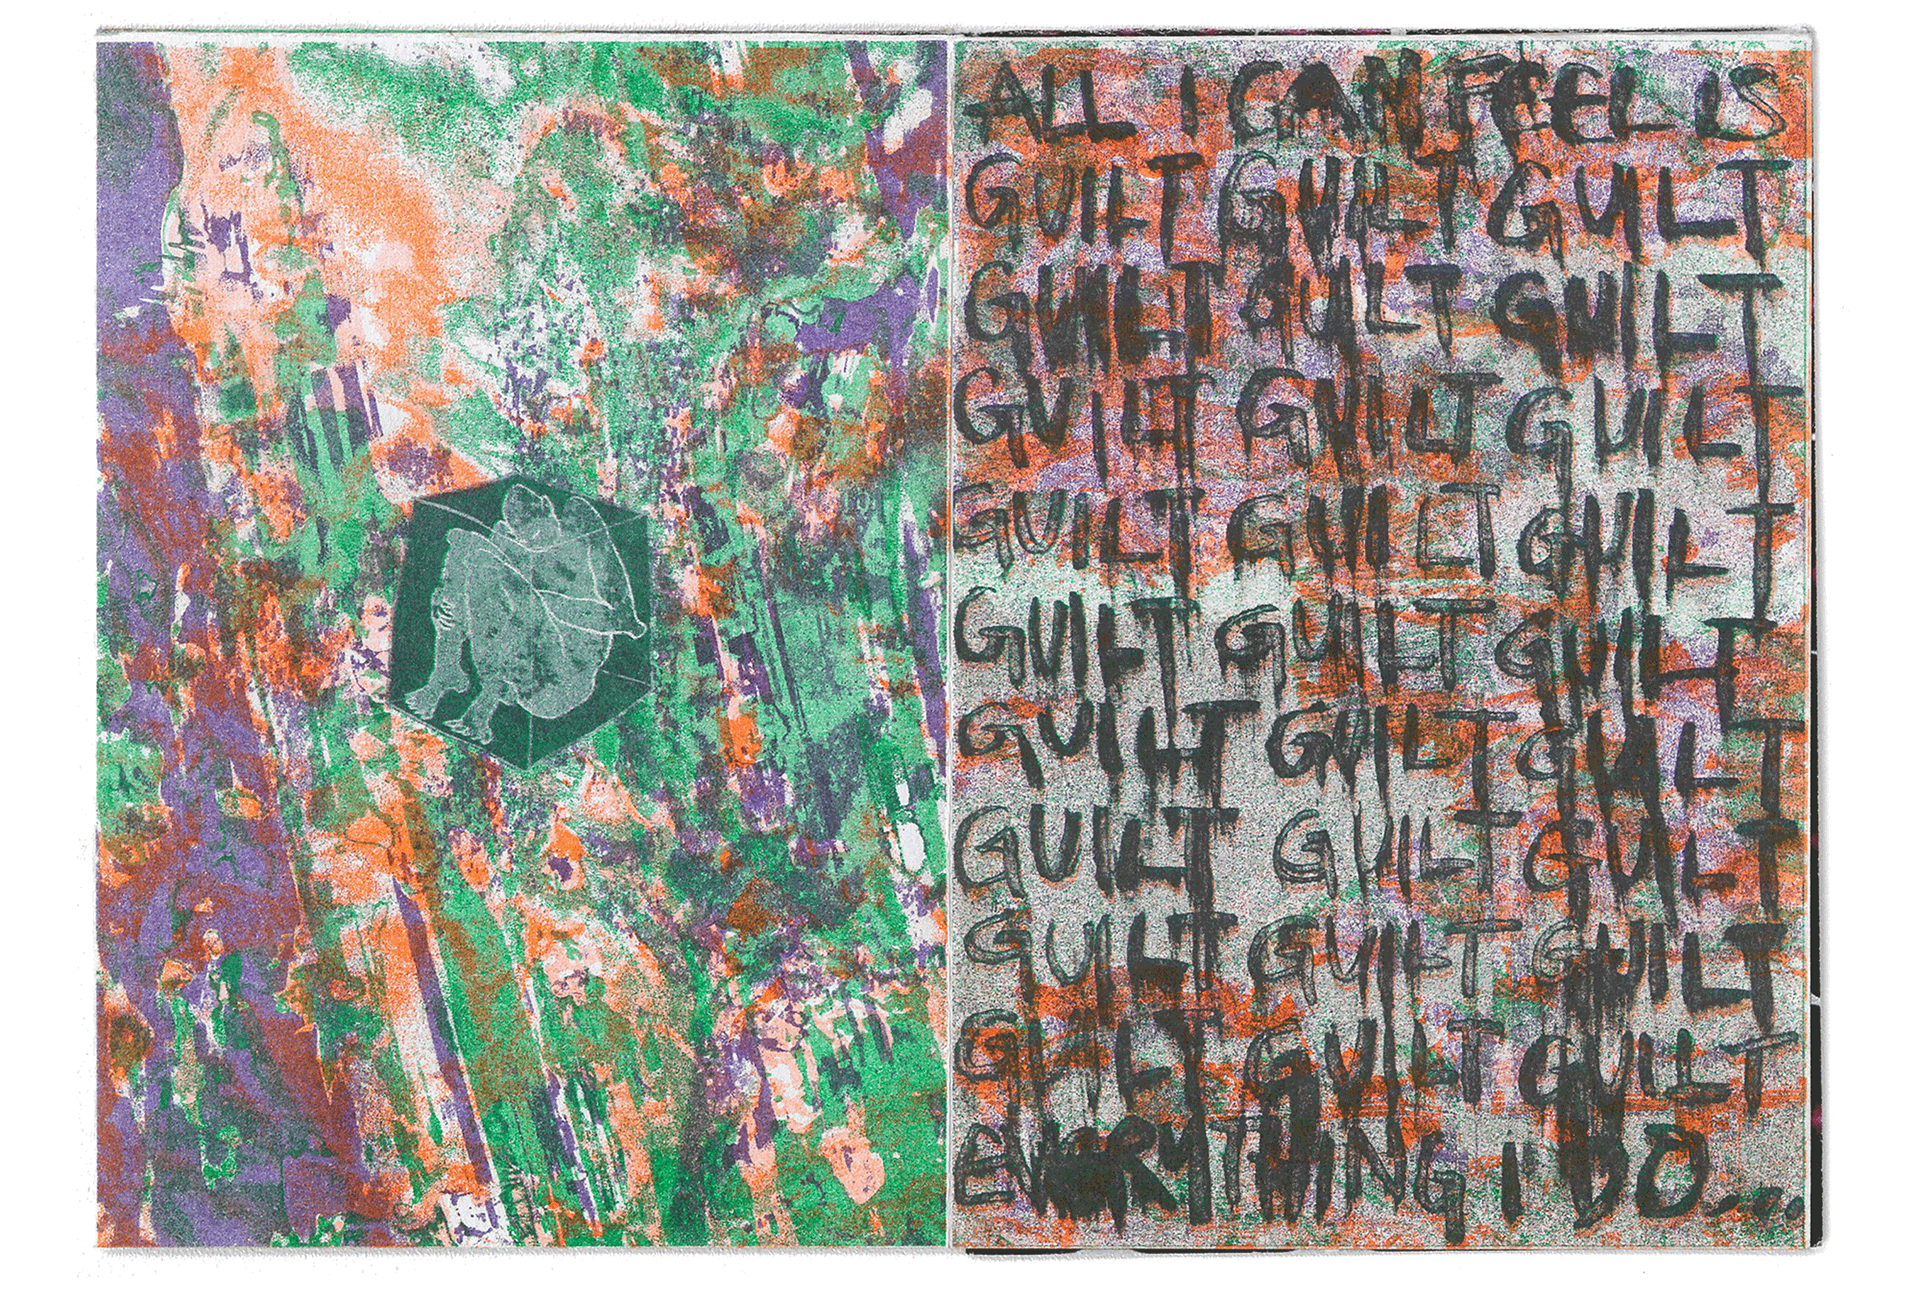 ALL I CAN FEEL IS
GUILT GUILT GUILT
GUILT GUILT GUILT
GUILT GUILT GUILT
GUILT GUILT GUILT
GUILT GUILT GUILT
GUILT GUILT GUILT
GUILT GUILT GUILT
GUILT GUILT GUILT
GUILT GUILT GUILT
EVERYTHING I DO....